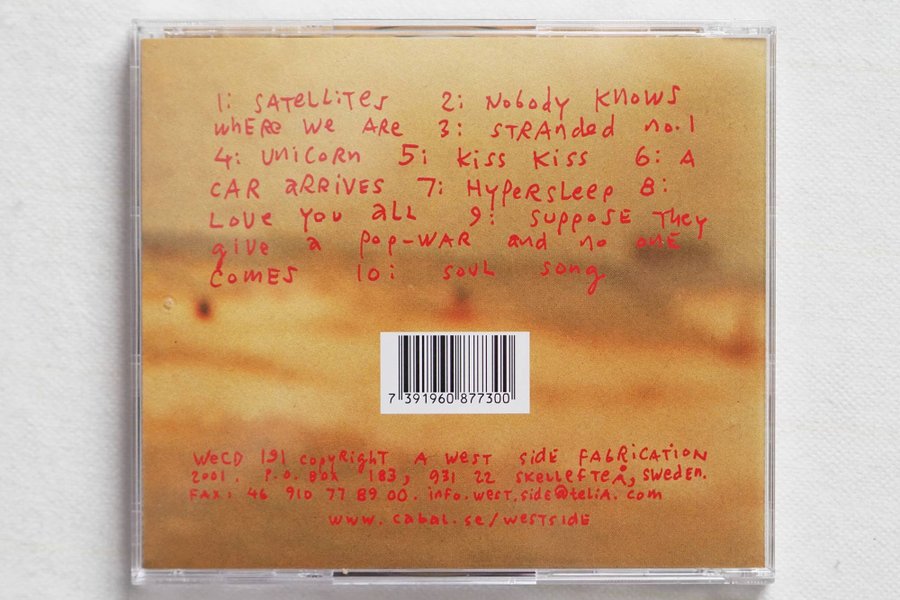 1: SATELLITES 2: NOBODY KNOWS
WHERE WE ARE 3: STRANDED NO.1
4: UNICORN 5: KISS KISS 6: A
CAR ARRIVES 7: HYPERSLEEP 8:
LOVE YOU ALL 9: SUPPOSE THEY
GIVE A POP-WAR AND NO ONE
COMES 10: SOUL SONG
7 391960 877300
WECD 191 COPYRIGHT A WEST SIDE FABRICATION
2001. P.O. BOX 183, 931 22 SKELLEFTEÅ, SWEDEN.
FAX: 46 910 77 89 00. info.west.side@telia.com
www.cabal.se/westside